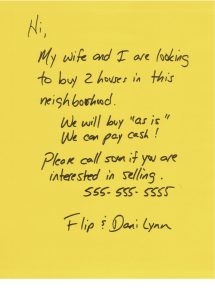 Hi,
My wife and I are looking
to buy 2 houses in this
neighborhood.
We will buy "as is"
We can pay cash!
Please call soon if you are
interested in selling.
555-555-5555
Flip & Dani Lynn